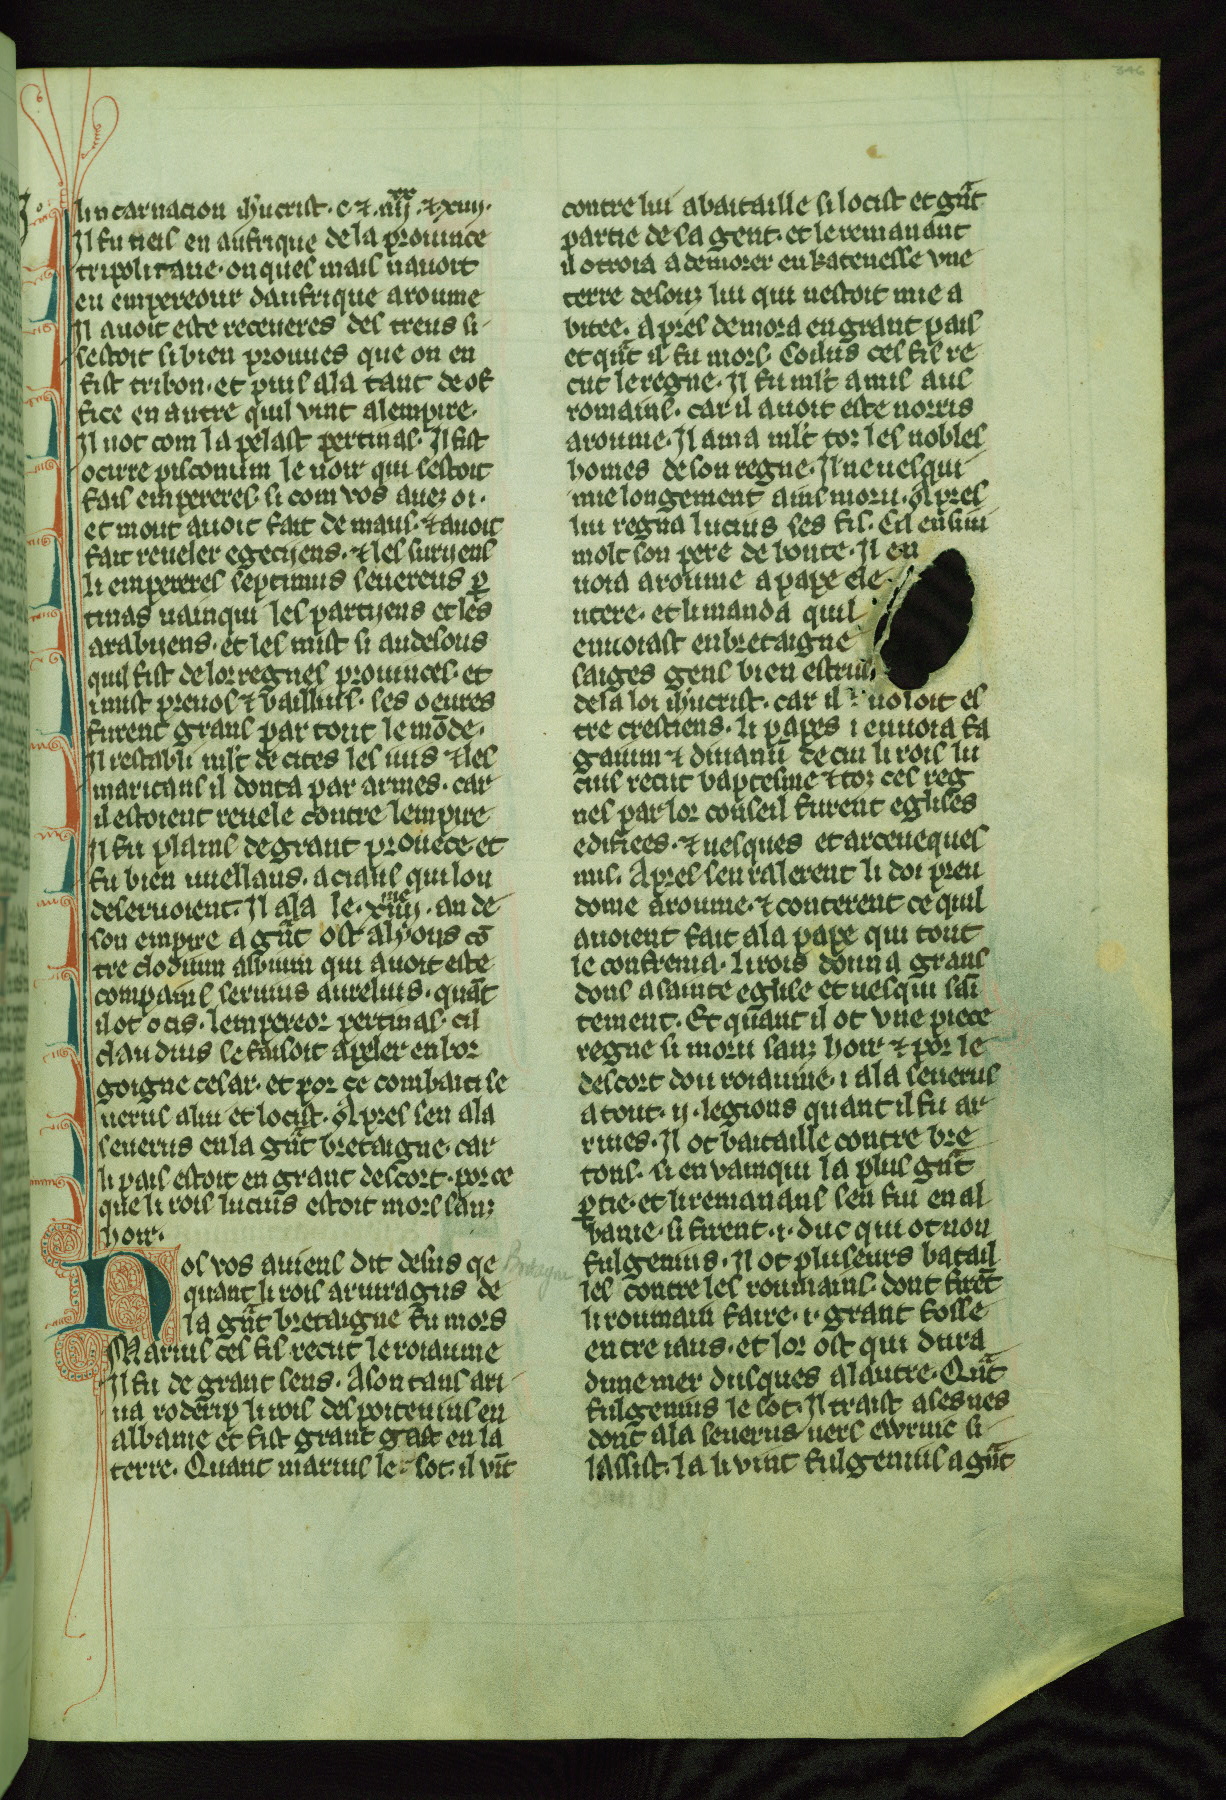 lincarnacion ihucrist. c. &. iiij. xx & xiiij.
Il fu neis en aufrique de la prouince
tripolitane. onques mais nauoit
eu empereour daufrique a roume
Il auoit este receueres des treus si
sestoit si bien prouues que on en
fist tribon. et puis ala tant de of
fice en autre quil vint a lempire.
Il uot com la pelast pertinas. Il fist
ocirre pisconium le noir qui sestoit
fais empereres. si com vos auez oi.
et mout auoit fait de maus. & auoit
fait reueler egecijens. & les surijens
li empereres septimus seuereus p̲
tinas uainqui les partijens et les
arabijens. et les mist si au desous
quil fist de lor regnes prouinces. et
i mist preuos & baillius. ses oeures
furent grans par tout le mōde.
Il restabli ml't de cites les unes & les
maritans il donta par armes. car
il estoient reuele contre lempire
Il fu plains de grant prouece. et
fu bien uuellans. a ciaus qui lou
deseruoient. Il ala le. xiiij. me. an de
son empire a gn̄t ost a lyons cō
tre clodium albium qui auoit este
compains seruius aurelius. quāt
il ot ocis. lempereor pertinas. cil
claudius se faisoit apeler en bor
goigne cesar. et por ce combati se
uerus a lui et locist. Apres sen ala
seuerus en la gn̄t bretaigne. car
li pais estoit en grant descort. por ce
que li rois lucius estoit mors sanz
hoir.
Nos vos auiens dit desus qe
quant li rois aruiragus de
la gn̄t bretaigne fu mors
Marius ces fis recut le roiaume
Il fu de grant sens. A son tans ari
ua roderip li rois des poiteuins en
albanie et fist grant gast en la
terre. Quant marius le sot. il vīt
contre lui a bataille si locist et gn̄t
partie de sa gent. et le remanant
il otroia a demorer en katenesse vne
terre desouz lui qui nestoit mie a
bitee. Apres demora en grant pais
et qn̄t il fu mors. Coilus ces fis re
cut le regne. Il fu ml't amis aus
romains. car il auoit este norris
a roume. Il ama ml't toz les nobles
homes de son regne. Il ne uesqui
mie longement ains moru. Apres
lui regna lucius ses fis. Cil ensiui
molt son pere de bonte. Il en
uoia a roume a pape ele
utere. et li manda quil
enuoiast en bretaigne
saiges gens bien estruis
de la loi ihucrist. car il uoloit es
tre crestiens. li papes i enuoia fa
ganum & diuianū de cui li rois lu
cius recut baptesme & toz ces reg
nes par lor conseil furent eglises
edifiees. & uesques et arceueques
mis. Apres sen ralerent li doi preu
dome a roume. & conterent ce quil
auoient fait a la pape qui tout
le conferma. li rois donna grans
dons a sainte eglise et uesqui sai
tement. Et quant il ot vne piece
regne si moru sanz hoir & por le
descort dou roiaume. i ala seuerus
a tout. ij. legions quant il fu ar
riues. Il ot bataille contre bre
tons. si en vainqui la plus gn̄t
p̲tie. et li remanans sen fui en al
banie. si firent. i. duc qui ot non
fulgenius. Il ot pluseurs batail
les contre les roumains. dont firēt
li roumain faire. i. grant fosse
entre iaus. et lor ost qui dura
dune mer dusques a lautre. Qn̄t
fulgenius le sot. Il traist a ses nes
dont ala seuerus uers ewruic si
lassist. la li vint fulgenius a gn̄t